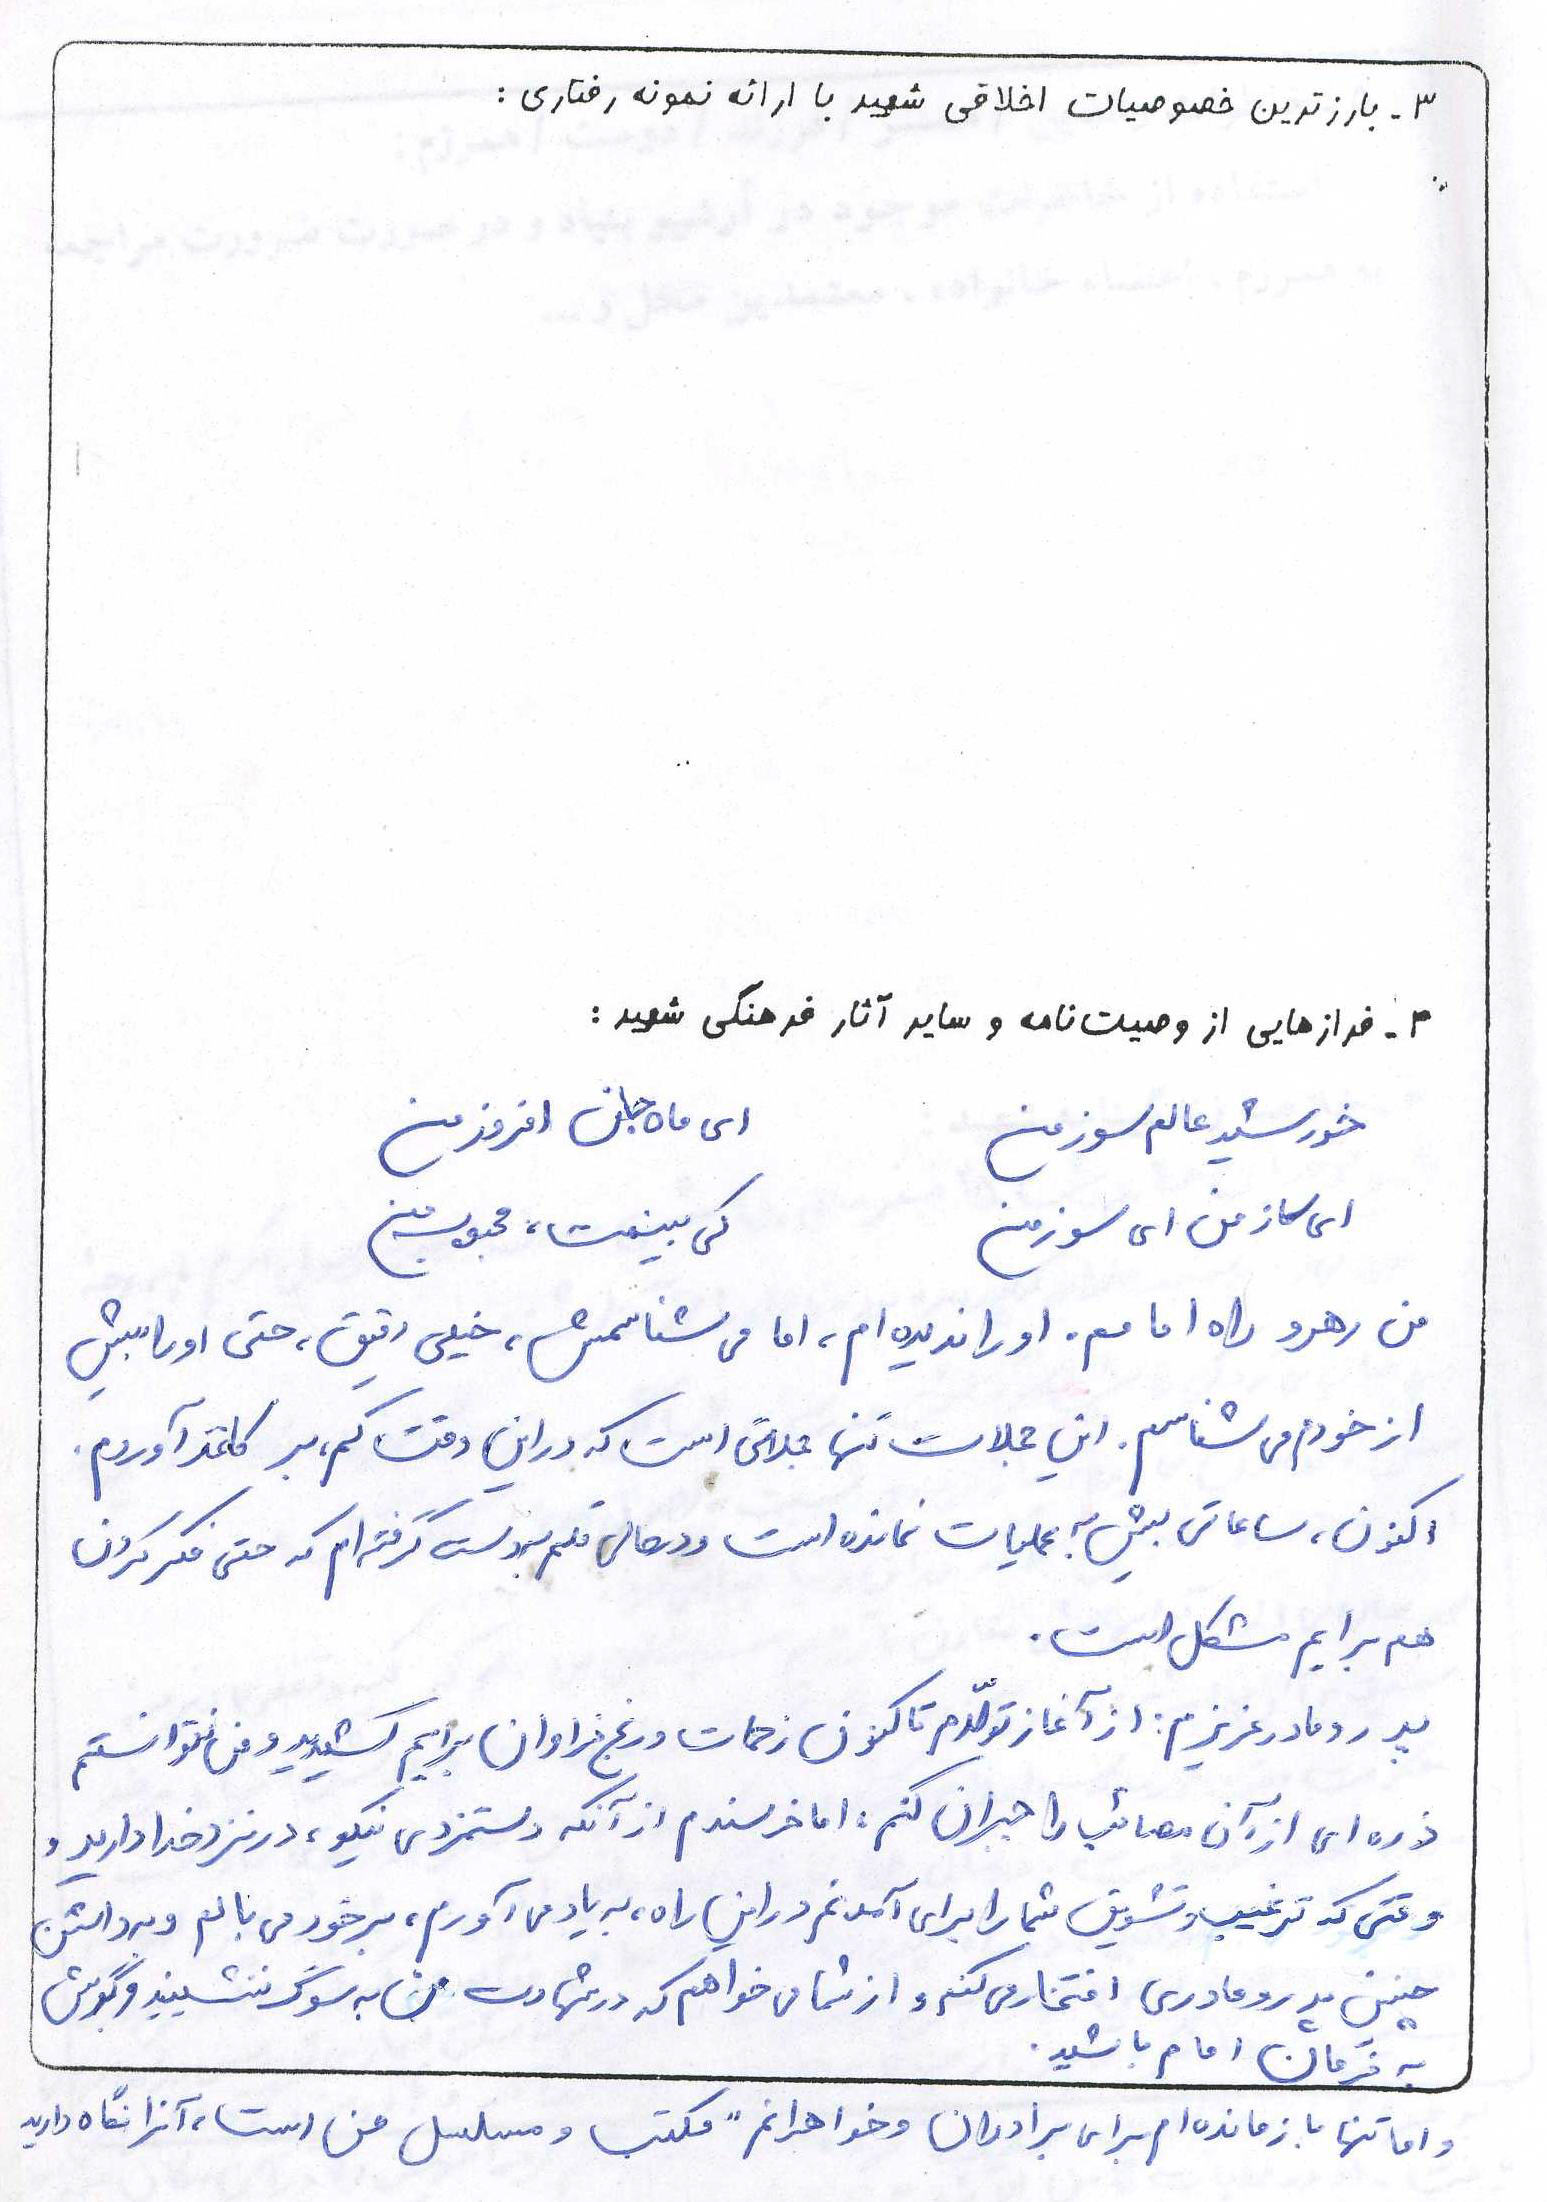 ۳ـ بارزترین خصوصیات اخلاقی شهید با ارائه نمونه رفتاری :
۴ـ فرازهایی از وصیت‌نامه و سایر آثار فرهنگی شهید :
خورشید عالم سوز من ای ماه جان افروز من
ای ساز من ای سوز من کی بینمت، محبوب من
من رهرو راه امامم. او را ندیده ام، اما می شناسمش، خیلی دقیق، حتی او را بیش
از خودم می شناسم. این جملات تنها جملاتی است که در این وقت کم، بر کاغذ آوردم.
اکنون، ساعاتی بیش به عملیات نمانده است و در حالی قلم بدست گرفته ام که حتی فکر کردن
هم برایم مشکل است.
پدر و مادر عزیزم: از آغاز تولّدم تا کنون زحمات و رنج فراوان برایم کشیدید و من نتوانستم
ذره ای از آن مصائب را جبران کنم، اما خرسندم از آنکه دستمزدی نیکو، در نزد خدا دارید و
وقتی که ترغیب و تشویق شما را برای آمدنم در این راه، به یاد می آورم، بر خود می بالم و به داشتن
چنین پدر و مادری افتخار می کنم و از شما می خواهم که در شهادت من به سوگ ننشینید و گوش
به فرمان امام باشید.
و اما تنها بازمانده ام برای برادران و خواهرانم " مکتب و مسلسل من است، آنرا نگاه دارید